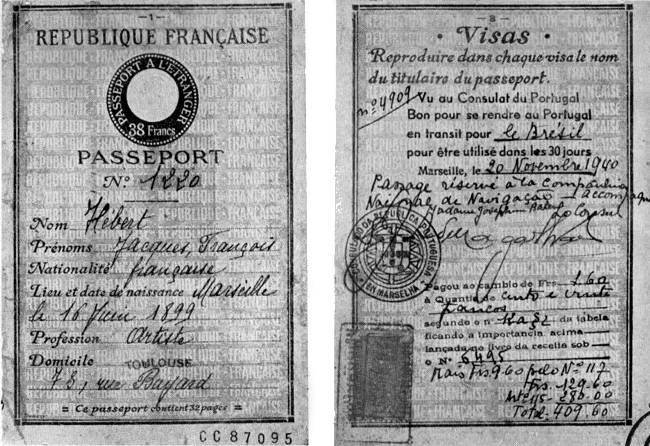 - 1 -
REPUBLIQUE FRANÇAISE
PASSEPORT A L'ETRANGER
38 Francs
PASSEPORT
N° 1220
Nom Hébert
Prénoms Jacques, François
Nationalité française
Lieu et date de naissance Marseille
le 16 Juin 1899
Profession Artiste
Domicile TOULOUSE
73, rue Bayard
= Ce passeport contient 32 pages =
CC87095
- 8 -
• Visas •
Reproduire dans chaque visa le nom
du titulaire du passeport.
n° 4909 Vu au Consulat du Portugal
Bon pour se rendre au Portugal
en transit pour le Brésil
pour être utilisé dans les 30 jours
Marseille, le 20 Novembre 1940
Passage réservé à la Compañhia
Nacional de Navigaçao accompagne
Madame
CONSULADO DA REPUBLICA PORTUGUESA
EM MARSELHA
Pagou ao cambio de Frs 1.60
a Quantia de cento e vinte
francos
segundo o n da tabela
ficando a importancia acima
lançada no livro da receita sob
o N° 6495
Mais Frs 9.60 pelo N° 117
Frs. 129.60
280.00
Total. 409.60